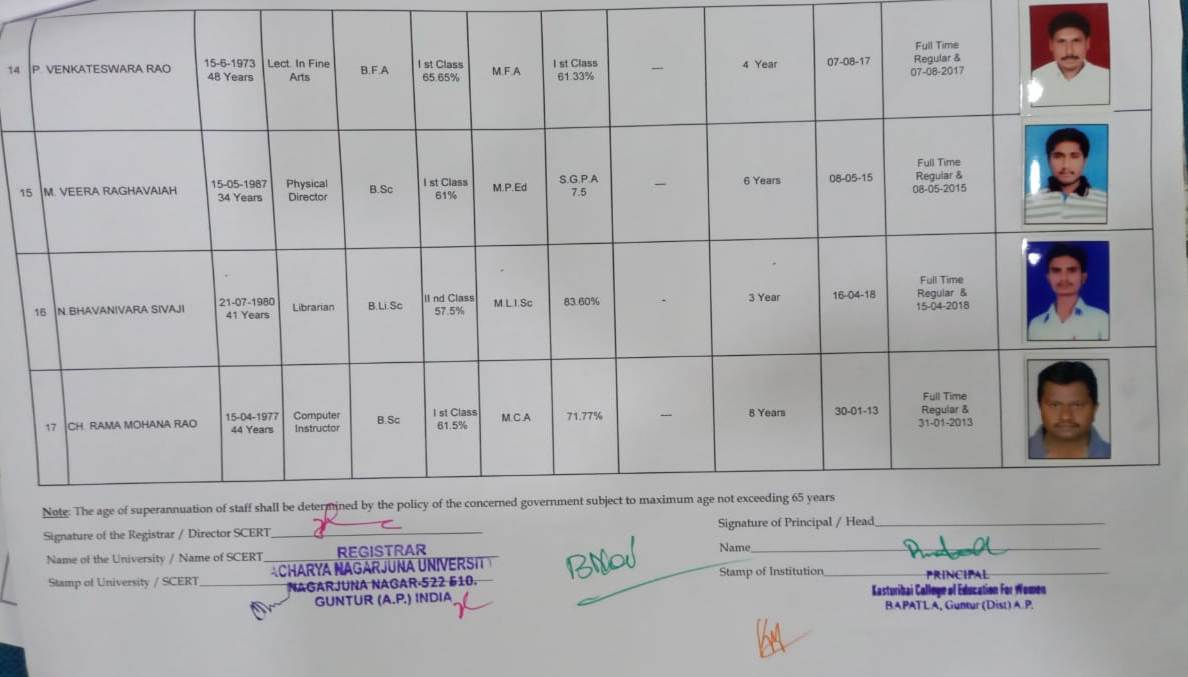 14 P. VENKATESWARA RAO 15-6-1973 48 Years Lect. In Fine Arts B.F.A I st Class 65.65% M.F.A I st Class 61.33% — 4 Year 07-08-17 Full Time Regular & 07-08-2017
15 M. VEERA RAGHAVAIAH 15-05-1987 34 Years Physical Director B.Sc I st Class 61% M.P.Ed S.G.P.A 7.5 — 6 Years 08-05-15 Full Time Regular & 08-05-2015
16 N.BHAVANIVARA SIVAJI 21-07-1980 41 Years Librarian B.Li.Sc II nd Class 57.5% M.L.I.Sc 83.60% - 3 Year 16-04-18 Full Time Regular & 15-04-2018
17 CH. RAMA MOHANA RAO 15-04-1977 44 Years Computer Instructor B.Sc I st Class 61.5% M.C.A 71.77% — 8 Years 30-01-13 Full Time Regular & 31-01-2013
Note: The age of superannuation of staff shall be determined by the policy of the concerned government subject to maximum age not exceeding 65 years
Signature of the Registrar / Director SCERT
Name of the University / Name of SCERT
Stamp of University / SCERT
REGISTRAR
ACHARYA NAGARJUNA UNIVERSITY
NAGARJUNA NAGAR-522 510.
GUNTUR (A.P.) INDIA
Signature of Principal / Head
Name
Stamp of Institution
PRINCIPAL
Kasturibai College of Education For Women
BAPATLA, Guntur (Dist) A.P.